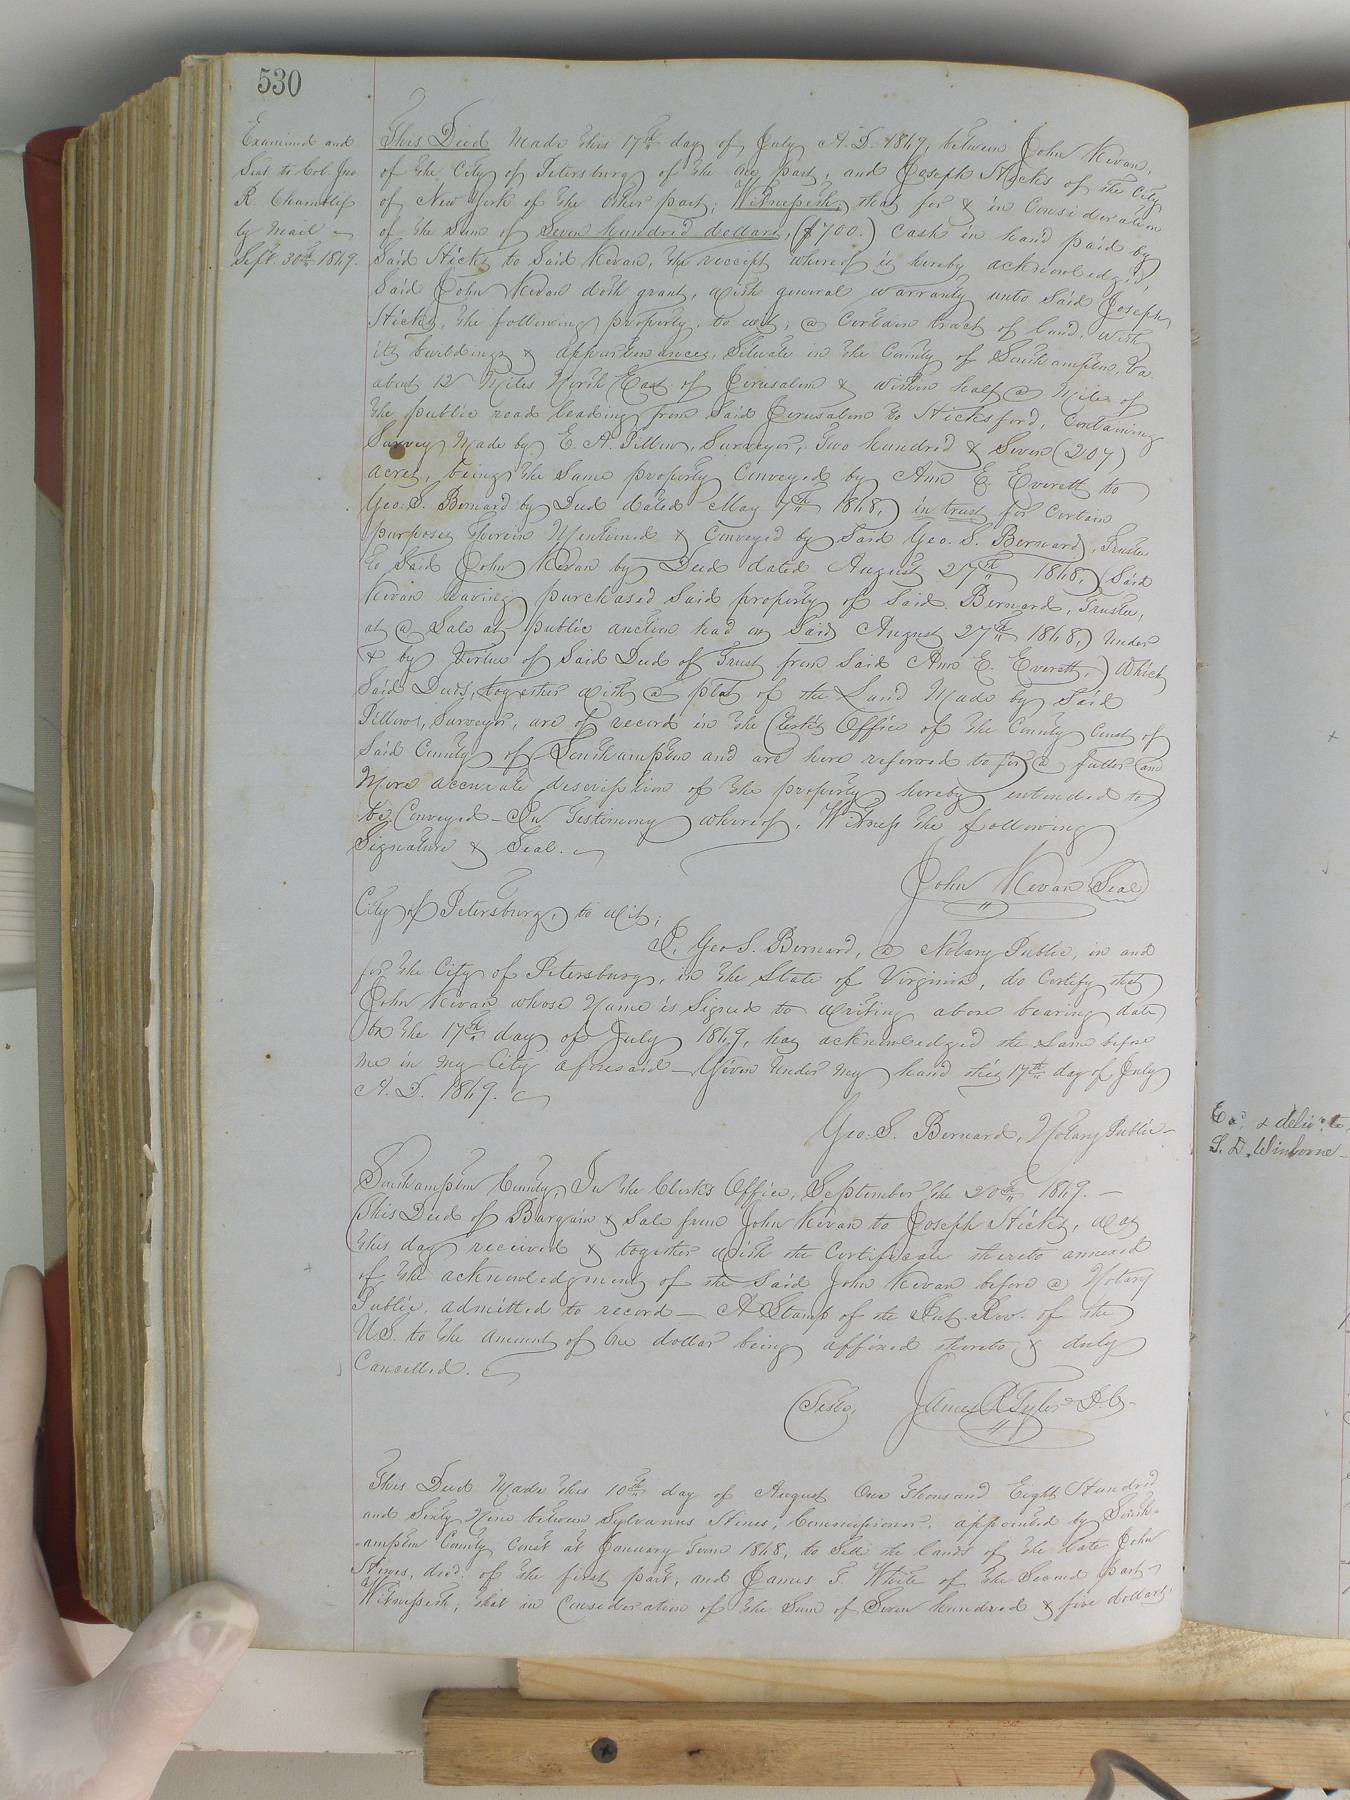 530
Examined and
Sent to Col. Jno
R. Chambliss
by Mail
Sept. 30th 1869.
This Deed Made this 17th day of July A. D. 1869, between John Kevan,
of the City of Petersburg of the one part, and Joseph Hicks of the City
of New York of the other part; Witnesseth, that for & in Consideration
of the sum of Seven hundred dollars, ($700.) Cash in hand paid by
Said Hicks to Said Kevan, the receipt whereof is hereby acknowledged,
Said John Kevan doth grant, with general warranty unto Said Joseph
Hicks, the following property, to wit, a Certain tract of land, with
its buildings & appurtenances, Situate in the County of Southampton, Va.
about 12 Miles North East of Jerusalem & within half a Mile of
the public road leading from Said Jerusalem to Hicksford, Containing
Survey Made by E. A. Pillow, Surveyor, Two hundred & Seven (207)
acres, being the Same property Conveyed by Ann E. Everett to
Geo. S. Bernard by Deed dated May 7th 1868,) in trust for Certain
purposes therein Mentioned & Conveyed by Said Geo. S. Bernard, Trustee
to Said John Kevan by Deed dated August 27th 1868, (Said
Kevan having purchased Said property of Said Bernard, Trustee,
at a Sale at public auction had on Said August 27th 1868,) under
& by Virtue of Said Deed of Trust from Said Ann E. Everett,) Which
Said Deeds, together with a plat of the Land Made by Said
Pillow, Surveyor, are of record in the Clerk's Office of the County Court of
Said County of Southampton and are here referred to for a fuller and
More accurate description of the property hereby intended to
be Conveyed - In Testimony whereof, Witness the following
Signature & Seal.
John Kevan Seal
City of Petersburg, to wit;
I, Geo S. Bernard, a Notary Public, in and
for the City of Petersburg, in the State of Virginia, do Certify that
John Kevan whose Name is Signed to writing above bearing date
on the 17th day of July 1869, has acknowledged the Same before
me in my City aforesaid - Given under My hand this 17th day of July
A. D. 1869.
Geo. S. Bernard, Notary Public -
Southampton County, In the Clerk's Office, September the 20th 1869. -
This Deed of Bargain & Sale from John Kevan to Joseph Hicks, was
this day received & together with the Certificate thereto annexed
of the acknowledgment of the Said John Kevan before a Notary
Public, admitted to record - A Stamp of the Int. Rev. of the
U.S. to the amount of One dollar being affixed thereto, & duly
Cancelled.
Teste, James R. Tyler D. C.
This Deed Made this 10th day of August One Thousand Eight Hundred
and Sixty Nine between Sylvanus Hines, Commissioner, appointed by South-
-ampton County Court at January Term 1868, to Sell the lands of the late John
Hines, decd. of the first part, and James T. White of the Second part -
Witnesseth, that in Consideration of the Sum of Seven hundred & five dollars
Exd. & delivd. to
S. D. Winborne -